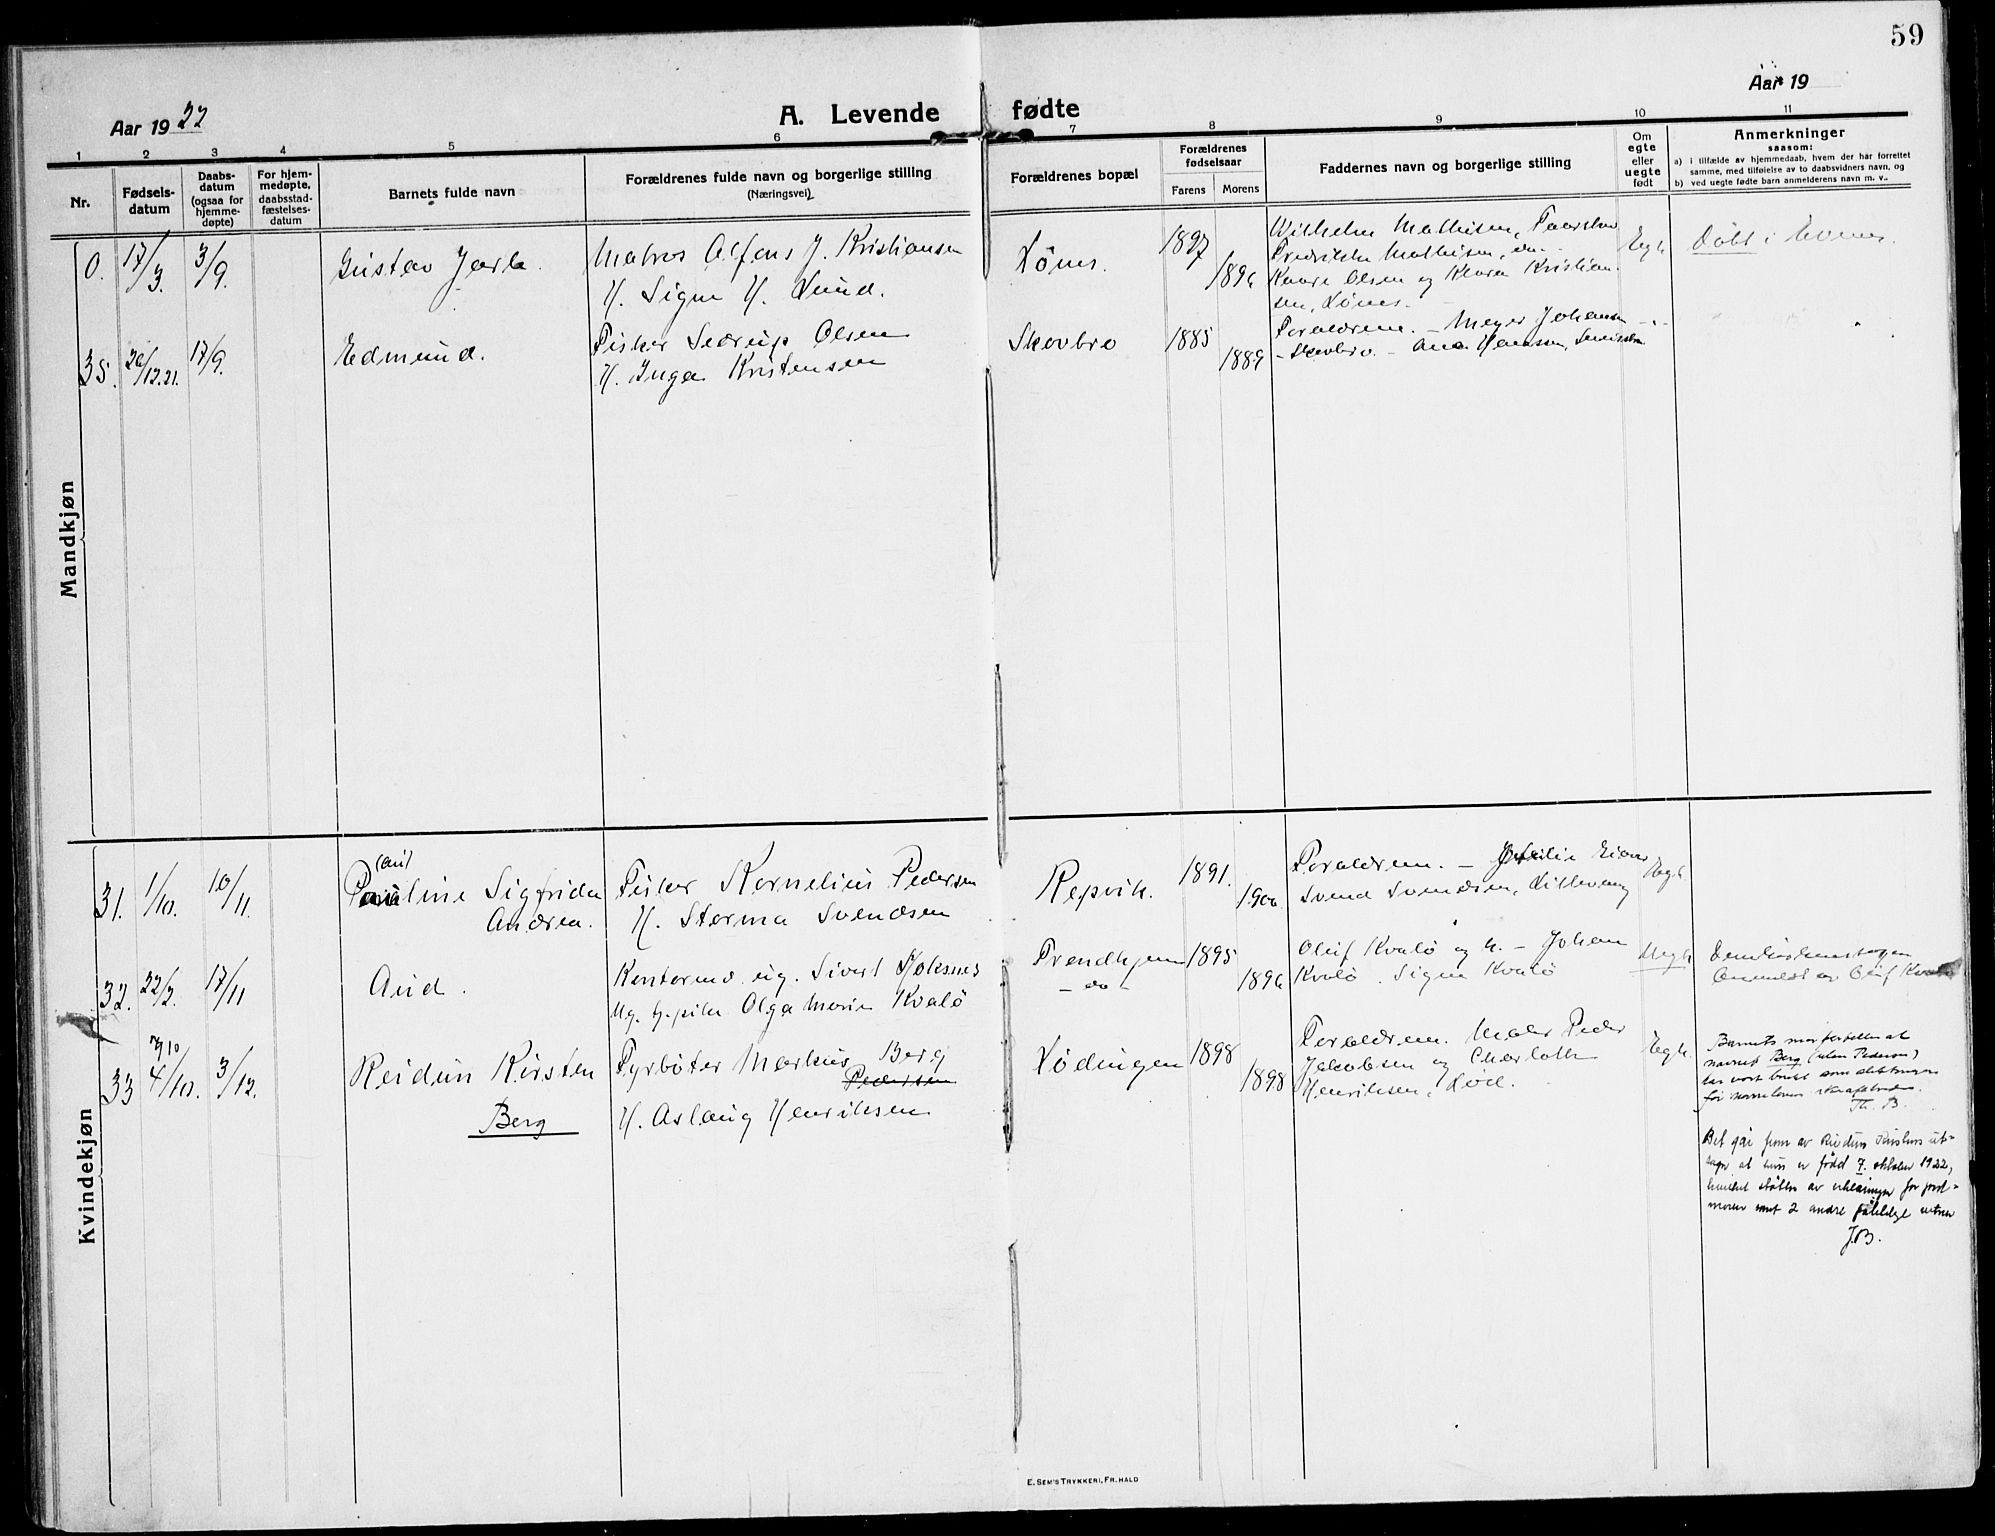 59
Aar 1922
A. Levende fødte
Aar 19
1 2 3 4 5 6 7 8 9 10 11
Nr.
Fødsels-
datum
Daabs-
datum
(ogsaa for
hjemme-
døpte)
For hjem-
medøpte,
daabsstad-
fæstelses-
datum
Barnets fulde navn
Forældrenes fulde navn og borgerlige stilling
(Næringsvei)
Forældrenes bopæl
Forældrenes
fødselsaar
Farens Morens
Faddernes navn og borgerlige stilling
Om
egte
eller
uegte
født
Anmerkninger
saasom:
a) i tilfælde av hjemmedaab, hvem der har forrettet
samme, med tilføielse av to daabsvidners navn, og
b) ved uegte fødte barn anmelderens navn m. v..
Mandkjøn
0. 17/3. 3/9. Gustav Jarle.
Matros Alfons J. Kristiansen
H. Signe H. Lund.
Lønes. 1897 1896
Wilhelm Mathisen,
Fredrikke Mathisen, do.
Kaare Olsen og Klara Kristian-
sen, Lønes.
Egt. Døbt i Evenes.
35. 26/12.21. 17/9. Edmund.
Fisker Sedrup Olsen
H. Inga Kristensen
Skovbro 1885 1889
Forældrene. - Meyer Johansen
- Skovbro. - Ana Hansen,
Kvindekjøn
31. 1/10. 10/11. (au)
Pauline Sigfrida
Andrea.
Fisker Kornelius Pedersen
H. Storma Svendsen
Repvik. 1891. 1900
Forældrene. -
Svend Svendsen,
Egt.
32. 22/2. 17/11 Aud.
Kontorms. ug. Sivert
Ug. Olga Marie Kvalø
Trondhjem - do - 1895 1896
Oluf Kvalø og h. - Johan
Kvalø. Signe Kvalø
Uegt.
Anmeldt av Oluf Kvalø
33 7/10 4/10. 3/12. Reidun Kirsten
Berg
Fyrbøter Markus Berg
Pedersen
H. Aslaug Henriksen
Lødingen 1898 1898
Forældrene. Maler Peder
Jakobsen og Charlotte
Henriksen, Lød.
Egt.
Barnets mor forteller at
navnet Berg (uten Pedersen)
har vært brukt som slektsnavn
før navneloven
Th. B.
Det går frem av Reidun Kirstens ut-
sagn at hun er född 7. oktober 1922,
hvilket støttes av erklæringer fra jord-
moren samt 2 andre pålidelige vitner
J.B.
E. SEM'S TRYKKERI, FR. HALD